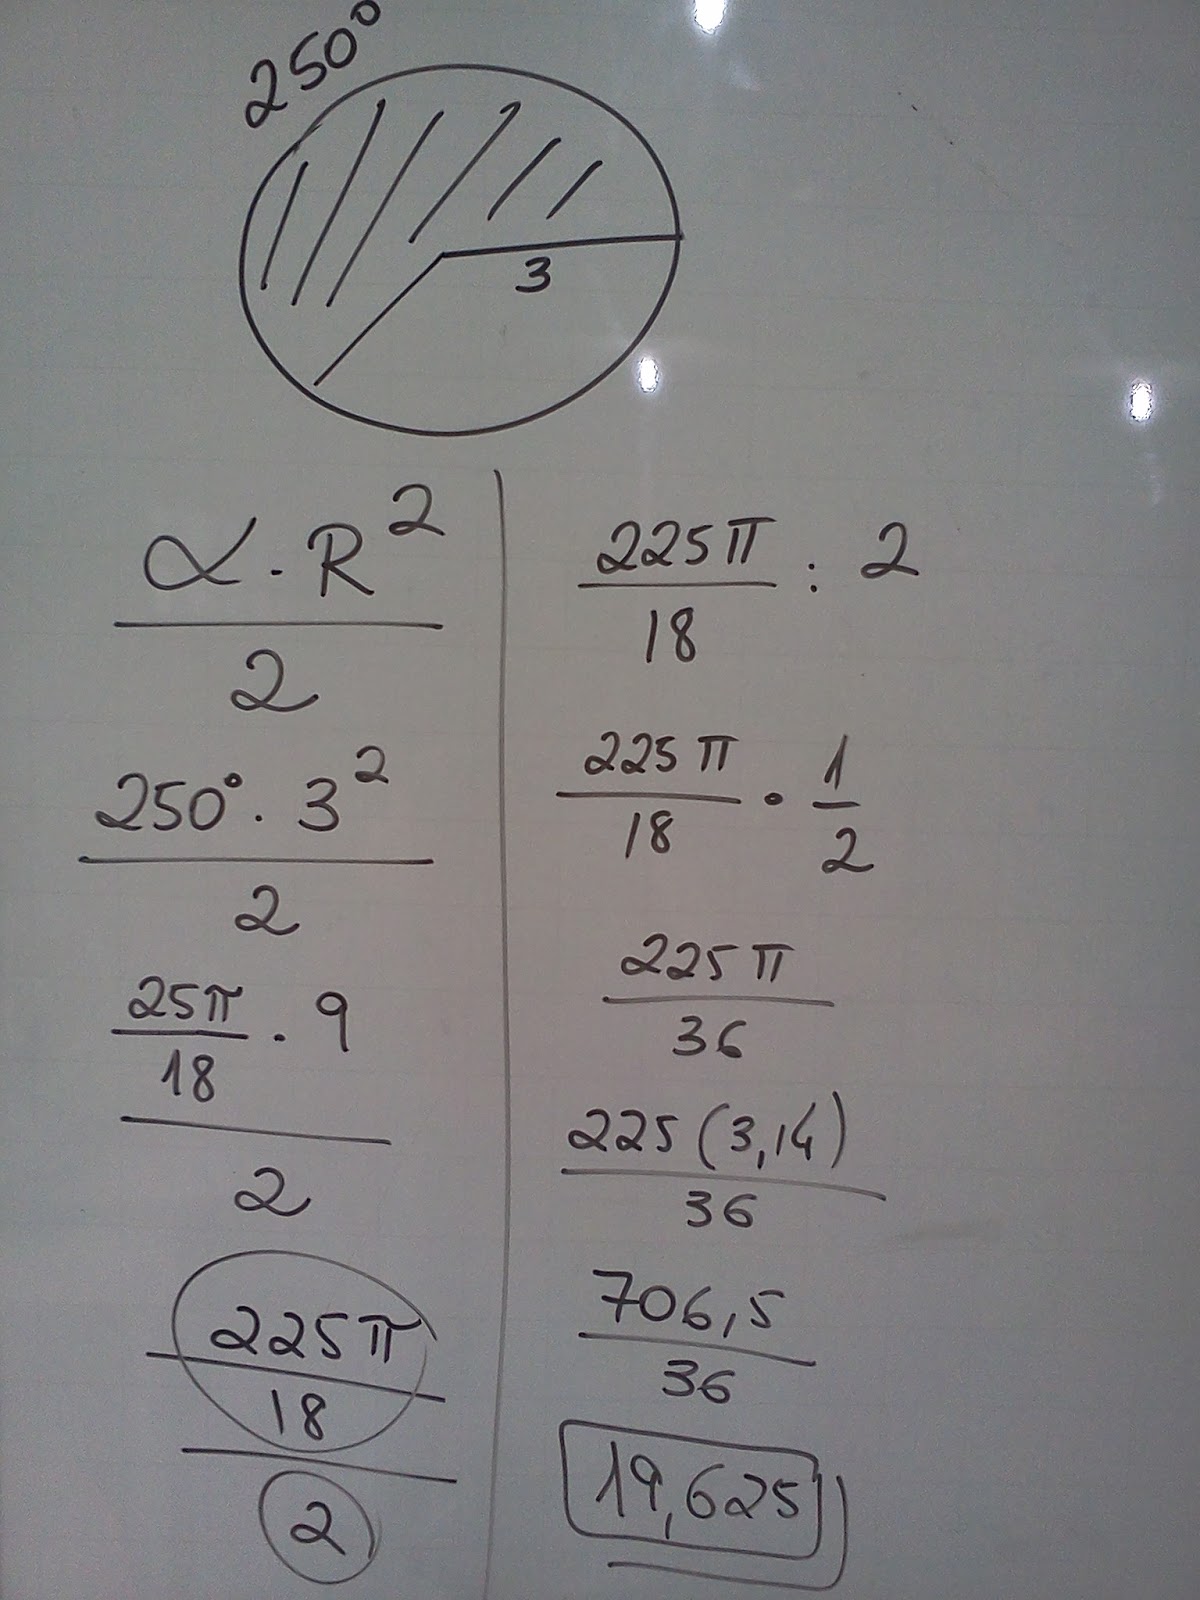 250°
3
α · R²
2
250° · 3²
2
25π
18
· 9
2
225π
18
2
225π
18
: 2
225π
18
· 1
2
225π
36
225 (3,14)
36
706,5
36
19,625